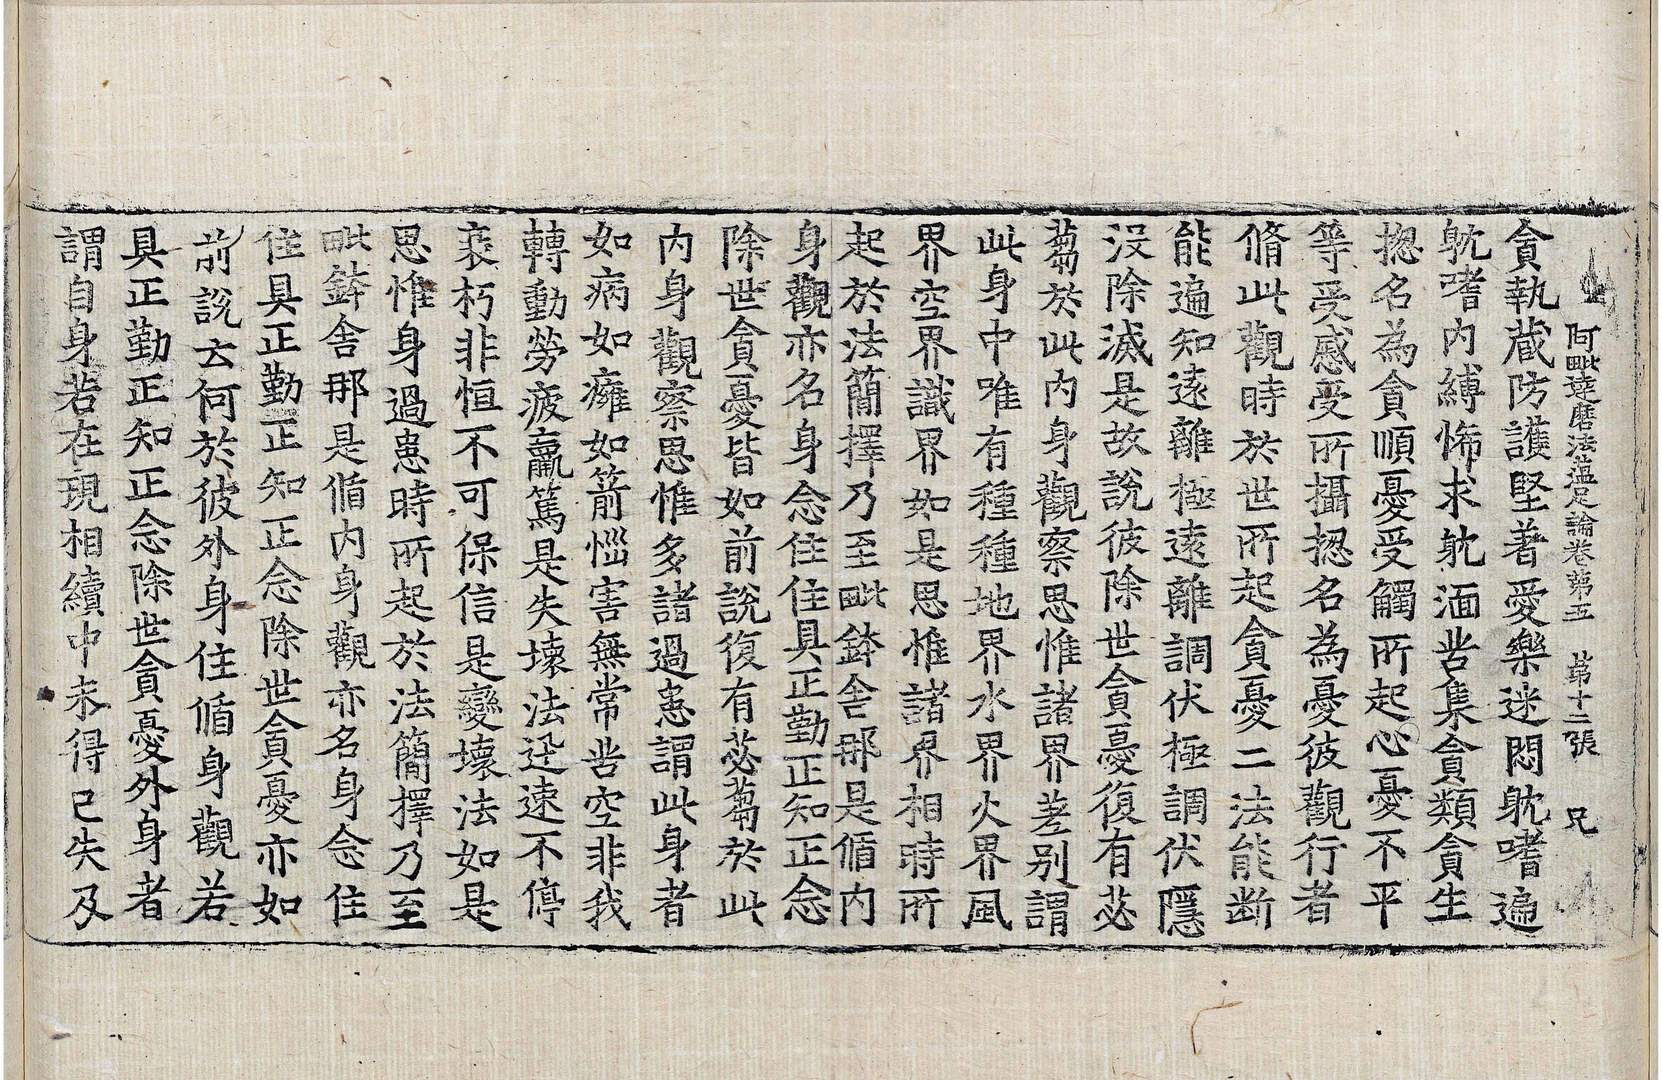 阿毗達磨法蘊足論卷第五　第十二張　兄
貪執藏防護堅著愛樂迷悶躭嗜遍
躭嗜內縛悕求躭湎苦集貪類貪生
揔名為貪順憂受觸所起心憂不平
等受慼受所攝揔名為憂彼觀行者
脩此觀時於世所起貪憂二法能斷
能遍知遠離極遠離調伏極調伏隱
沒除滅是故說彼除世貪憂復有苾
蒭於此內身觀察思惟諸界差別謂
此身中唯有種種地界水界火界風
界空界識界如是思惟諸界相時所
起於法簡擇乃至毗鉢舍那是循內
身觀亦名身念住住具正勤正知正念
除世貪憂皆如前說復有苾蒭於此
內身觀察思惟多諸過患謂此身者
如病如癰如箭惱害無常苦空非我
轉動勞疲羸篤是失壞法迅速不停
衰朽非恒不可保信是變壞法如是
思惟身過患時所起於法簡擇乃至
毗鉢舍那是循內身觀亦名身念住
住具正勤正知正念除世貪憂亦如
前說云何於彼外身住循身觀若
具正勤正知正念除世貪憂外身者
謂自身若在現相續中未得已失及